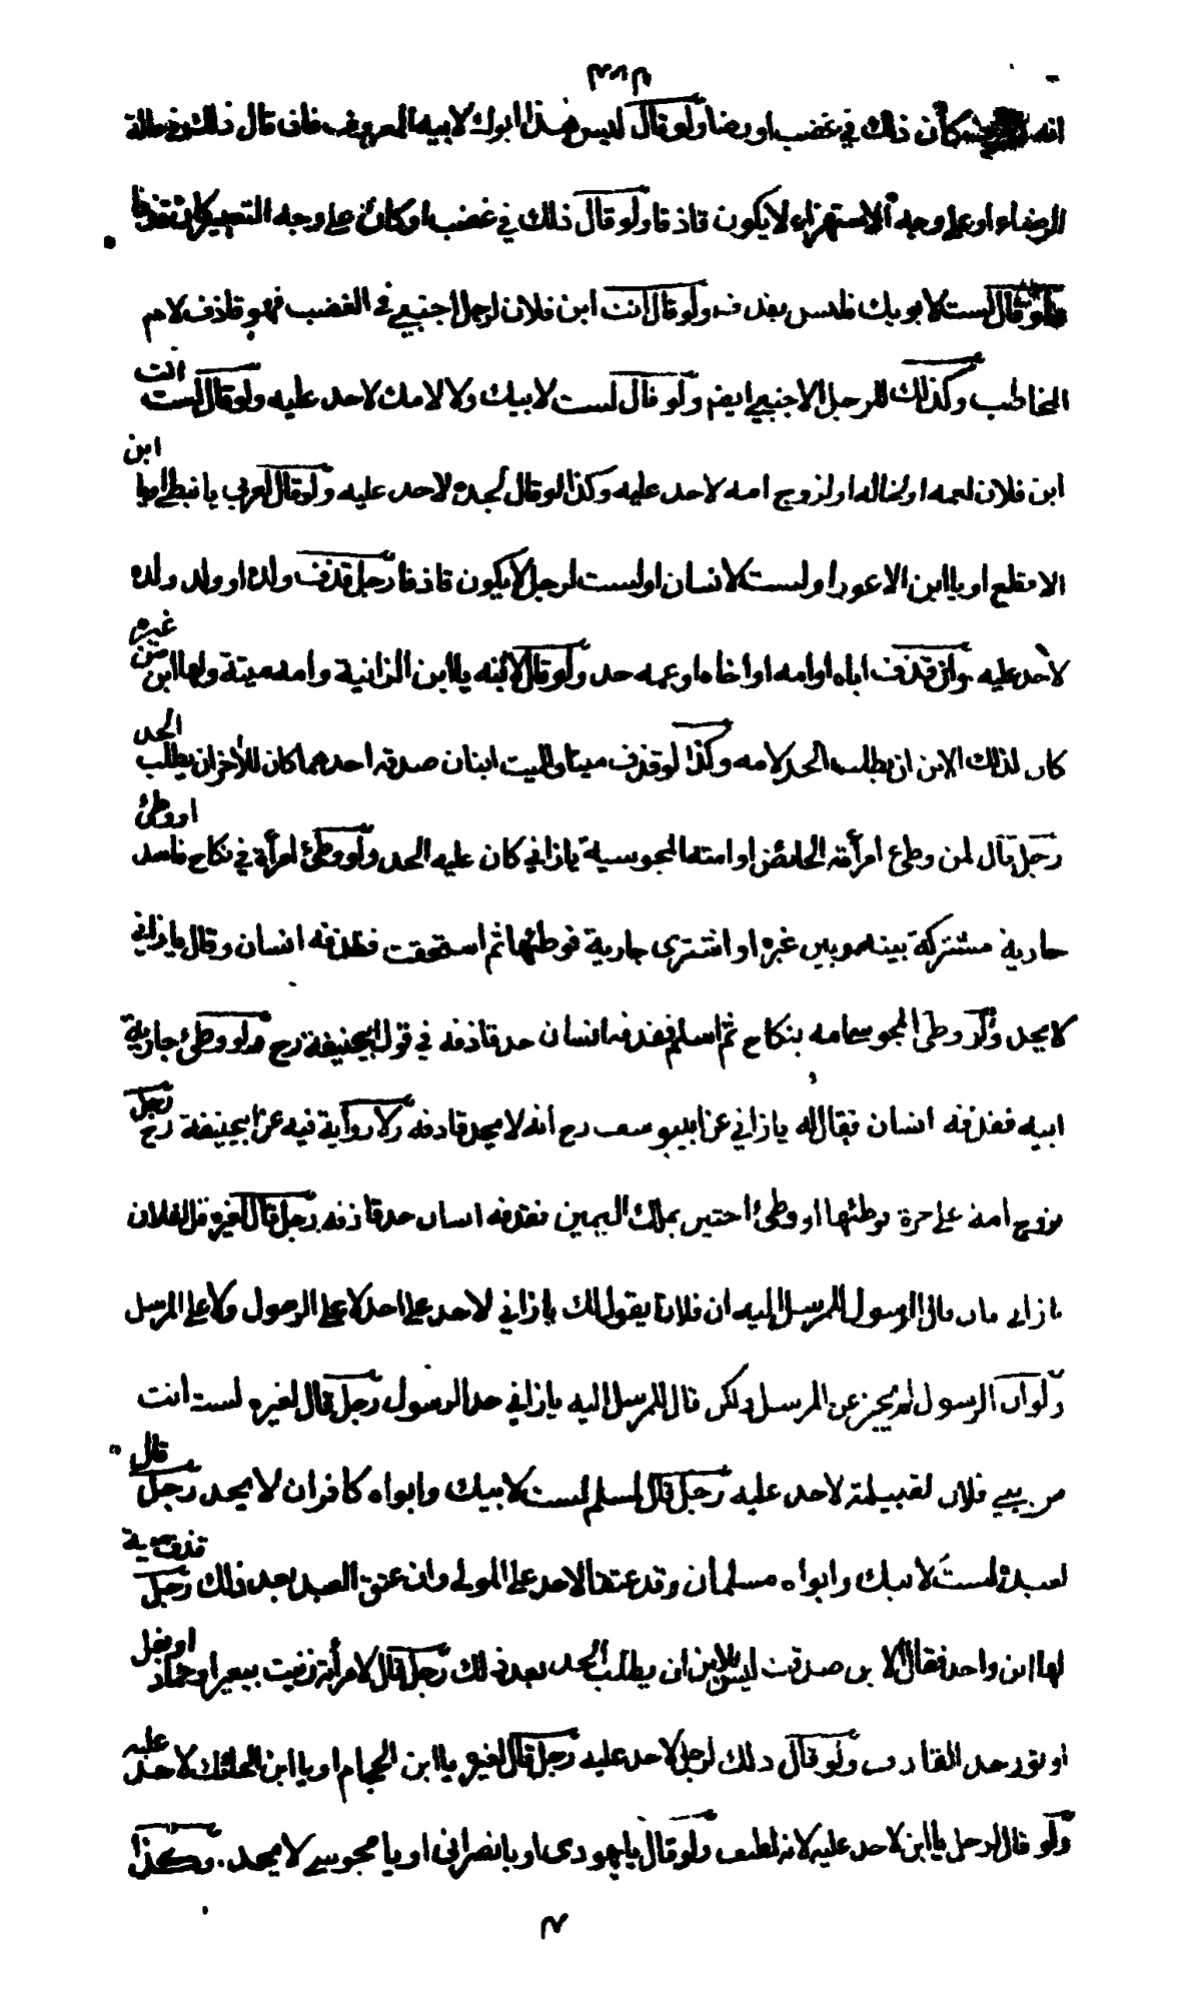 انه كان ذلك في غضب او رضا ولو قال ليس هذا ابوك لابيه المعروف فان قال ذلك في حالة
الرضاء او على وجه الاستهزاء لا يكون قاذفا ولو قال ذلك في غضب او كان على وجه التعيير كان قذفا
ولو قال لست لابويك فليس بقذف ولو قال انت ابن فلان لرجل اجنبي في الغضب فهو قاذف لام
المخاطب وكذلك للرجل الاجنبي ايضم ولو قال لست لابيك ولا لامك لا حد عليه ولو قال لست انت
ابن فلان لعمه او لخاله او لزوج امه لا حد عليه وكذا لو قال لجده لا حد عليه ولو قال لعربي يا نبطي او يا ابن
الاقطع او يا ابن الاعور او لست لانسان او لست لرجل لا يكون قاذفا رجل قذف ولده او ولد ولده
لا حد عليه وان قذف اباه او امه او اخاه او عمه حد ولو قال لابنه يا ابن الزانية وامه ميتة ولها ابن من غيره
كان لذلك الابن ان يطلب الحد لامه وكذا لو قذف ميتا وللميت ابنان صدقه احدهما كان للآخر ان يطلب الحد
رجل قال لمن وطئ امرأته الحائض او امته المجوسية يا زاني كان عليه الحد ولو وطئ امرأة في نكاح فاسد او وطئ
جارية مشتركة بينه وبين غيره او اشترى جارية فوطئها ثم استحقت فقذفه انسان وقال يا زاني
لا يحد ولو وطئ المجوسي امه بنكاح ثم اسلم فقذفه انسان حد قاذفه في قول ابي حنيفة رح ولو وطئ جارية
ابيه فقذفه انسان فقال له يا زاني عن ابي يوسف رح انه لا يحد قاذفه ولا رواية فيه عن ابي حنيفة رح رجل
تزوج امة على حرة ووطئها او وطئ اختين بملك اليمين فقذفه انسان حد قاذفه رجل قال لغيره قل لفلان
يا زاني فان قال الرسول للمرسل اليه ان فلانا يقول لك يا زاني لا حد على احد لا على الرسول ولا على المرسل
ولو ان الرسول لم يخبر عن المرسل ولكن قال للمرسل اليه يا زاني حد الرسول رجل قال لغيره لست انت
من بني فلان لقبيلته لا حد عليه رجل قال لمسلم لست لابيك وابواه كافران لا يحد رجل قال
لعبده لست لابيك وابواه مسلمان وقد عتقا لا حد على المولى وان عتق العبد بعد ذلك رجل قذف ميتة
لها ابن واحد فقال الابن صدقت ليس للابن ان يطلب الحد بعد ذلك رجل قال لامرأة زنيت ببعير او حمار او بغل
او ثور حد القاذف ولو قال ذلك لرجل لا حد عليه رجل قال لغيره يا ابن الحجام او يا ابن الحائك لا حد عليه
ولو قال لرجل يا ابن لا حد عليه لانه لطف ولو قال يا يهودي او يا نصراني او يا مجوسي لا يحد. وكذا